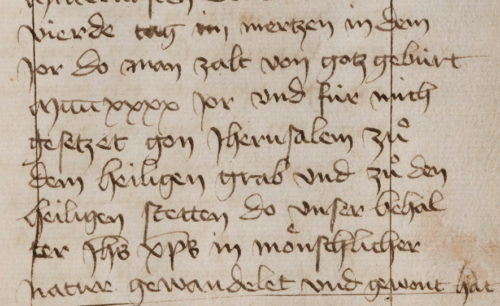 vierde tag im mertzen in dem
jor do man zalt von gotz gebúrt
Mccccxxxx jor vnd für mich
gesetzet gon Jherusalem zuͦ
dem heiligen grab vnd zuͦ den
heiligen stetten do vnser behal
ter Jhs xps in moͤnschlicher
nature gewandelet vnd gewont hat